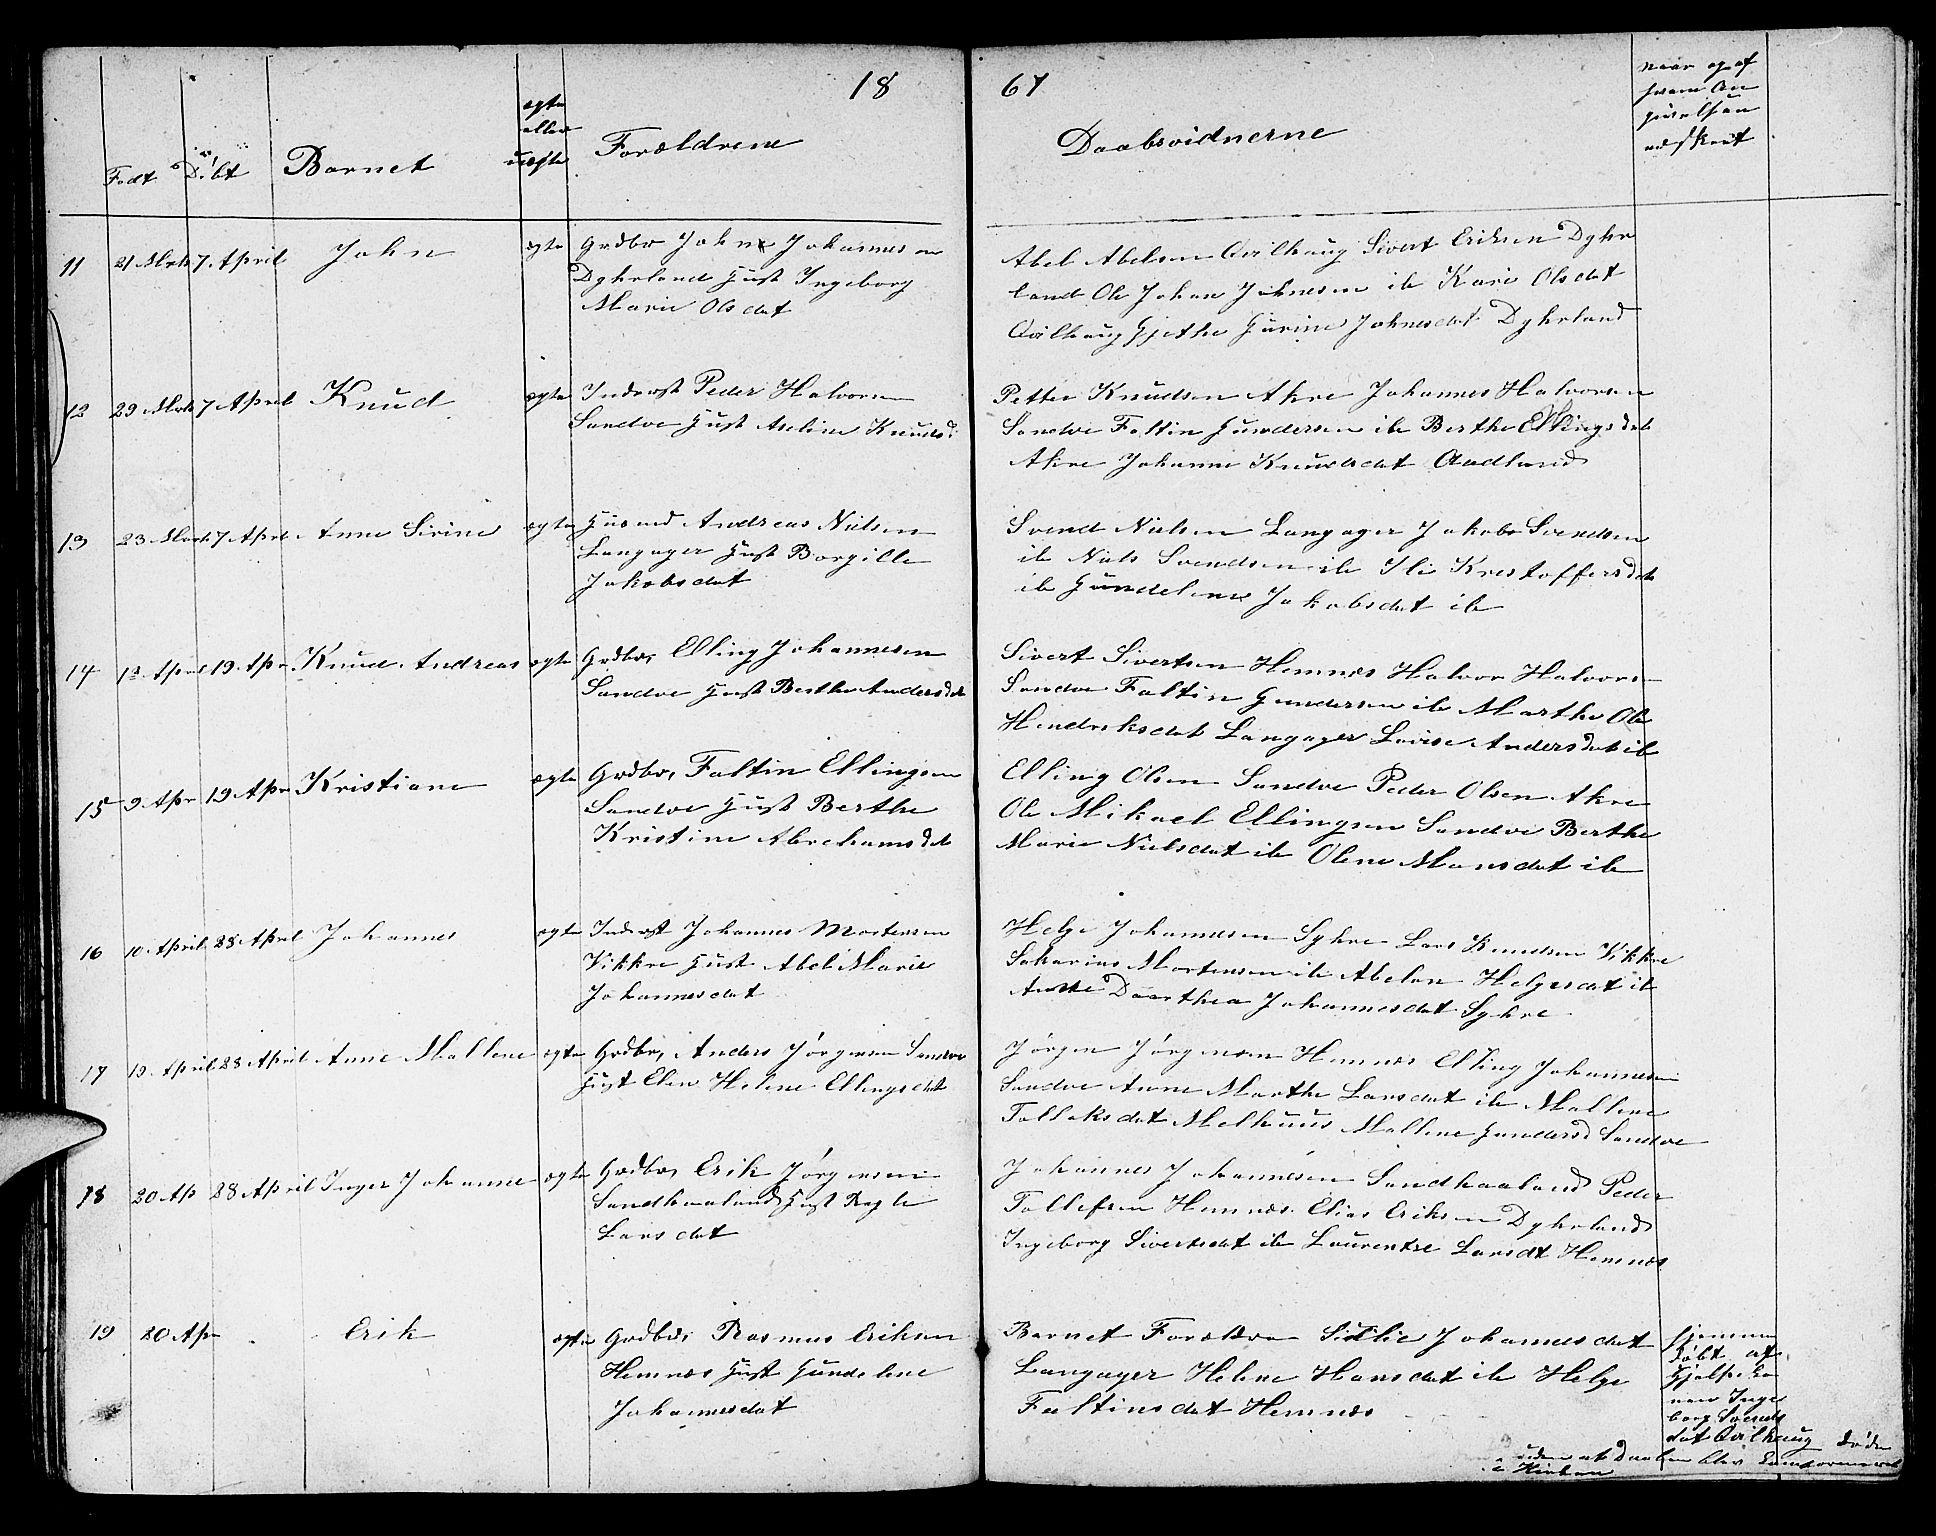 18 67
Født Døbt Barnet ægte eller uægte Forældrene Daabsvidnerne naar og af hvem An
givelsen
udskrevt
11 21 Mrts 7 April John ægte Grdbr John Johannesen
Dyhrland Hust Ingeborg
Marie Olsdat
Abel Abelsen Qvilhaug Sivert Eriksen Dyhr
land Ole Johan Johnesen ib Kari Olsdat
Qvilhaug Gjethe Gurine Johnesdat Dyhrland
12 29 Mrts 7 April Knud ægte Inderst Peder Halvorsen
Sandve Hust Aseline Knudsd
Petter Knudsen Akre Johannes Halvorsen
Sandve Faltin Gundersen ib Berthe Ellingsdat
Akre Johanne Knudsdat Aadland
13 23 Mrts 7 April Anne Sirine ægte Husmd Andreas Nielsen
Langager Hust Borgille
Jakobsdat
Svend Nielsen Langager Jakob Svendsen
ib Niels Svendsen ib Ili Kristoffersdat
ib Gundeline Jakobsdat ib
14 13 April 19 Apr Knud Andreas ægte Grdbr, Elling Johannesen
Sandve Hust Berthe Andersdat
Sivert Sivertsen Hemnæs Halvor Halvors
Sandve Faltin Gundersen ib Marthe Ole
Hendriksdat Langager Lovise Andersdat ib
15 9 Apr 19 Apr Kristiane ægte Grdbr, Faltin Ellingsen
Sandve Hust Berthe
Kristine Abrehamsdat
Elling Olsen Sandve Peder Olsen Akre
Ole Mikael Ellingsen Sandve Berthe
Marie Nielsdat ib Olene Mansdat ib
16 10 April 28 April Johannes ægte Inderst Johannes Mortensen
Vikkre Hust Abel Marie
Johannesdat
Helge Johannesen Syhre Lars Knudsen Vikkre
Sakarias Mortensen ib Abelone Helgesdat ib
Anne Daarthea Johannesdat Syhre
17 19 April 28 April Anne Mallene ægte Grdbr, Anders Jørgensen Sandve
Hust Elen Helene Ellingsdat
Jørgen Jørgensen Hemnæs Elling Johannesen
Sandve Anne Marthe Larsdat ib Mallene
Tollaksdat Melhuus Mallene Gundersd Sandve
18 20 Ap 28 April Inger Johanne ægte Grdbr, Erik Jørgensen
Sandhaaland Hust Ragle
Larsdat
Johannes Johannesen Sandhaaland Peder
Tollefsen Hemnæs Elias Eriksen Dyhrland
Ingeborg Sivertsdat ib Laurentse Larsdt Hemnæs
19 20 Apr Erik ægte Grdbr, Rasmus Eriksen
Hemnæs Hust Gundeline
Johannesdat
Barnet Forældre Sillie Johannesdat
Langager Helene Hansdat ib Helge
Faltinsdat Hemnæs
hjemme
døbt af
Hjelpeko
nen Inge
borg Svends
dat Qvilhaug døde
uden at Daaben blev Konformeret
i Kirken